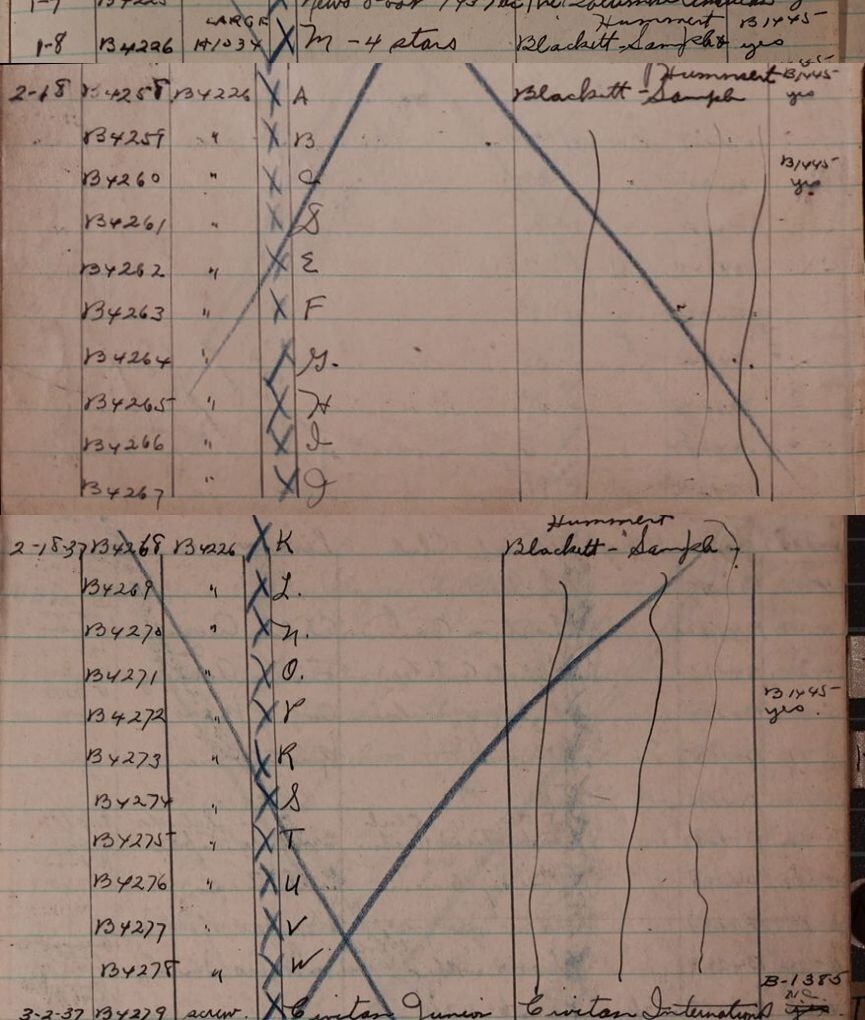 LARGE Hummert B1445-
1-8 B4226 H1034 X M - 4 stars Blackett-Sample yes
Hummert B1445-
2-18 B4258 B4226 X A Blackett-Sample yes
B4259 " X B
B4260 " X C B1445- yes
B4261 " X D
B4262 " X E
B4263 " X F
B4264 " X G.
B4265 " X H
B4266 " X I
B4267 " X J
Hummert
2-18-37 B4268 B4226 X K Blackett-Sample
B4269 " X L.
B4270 " X N.
B4271 " X O.
B4272 " X P B1445- yes.
B4273 " X R
B4274 " X S
B4275 " X T
B4276 " X U
B4277 " X V
B4278 " X W B-1385
3-2-37 B4279 screw. X Civitan Junior Civitan International